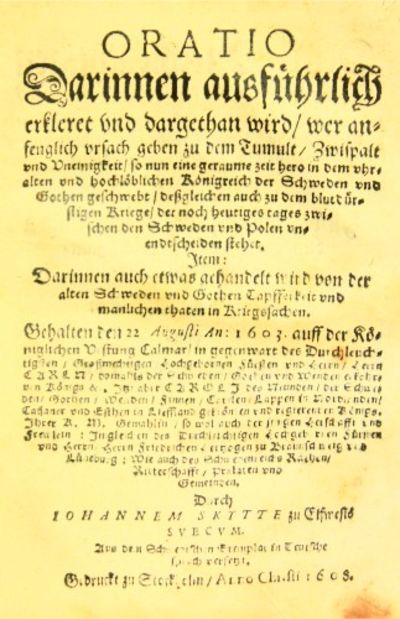 ORATIO
Darinnen ausführlich
erkleret vnd dargethan wird/ wer an-
fenglich vrsach geben zu dem Tumult/ Zwispalt
vnd Vneinigkeit/ so nun eine geraume zeit hero in dem vhr-
alten vnd hochlöblichen Königreich der Schweden vnd
Gothen geschwebt/ deßgleichen auch zu dem blutdür-
stigen Kriege/ der noch heutiges tages zwi-
schen den Schweden vnd Polen vn-
endtscheiden stehet.
Item:
Darinnen auch etwas gehandelt wird von der
alten Schweden vnd Gothen Tapfferkeit vnd
manlichen thaten in Kriegssachen.
Gehalten den 22 Augusti An: 1603. auff der Kö-
niglichen Vestung Calmar/ in gegenwart des Durchleuch-
tigsten/ Großmechtigen Hochgebornen Fürsten vnd Herrn/ Herrn
CARLN/ der Schweden/ Gothen vnd Wenden
Königs CAROLI des Neunden/ der Schwe-
den/ Gothen/ Wenden/ Finnen/ Carelen/ Lappen in Norden/
vnd Esthen in Lieffland vnd regierenden Königs.
Ihrer K. M. Gemahlin/ so wol auch der jungen Herschafft vnd
Frewlein: Ingleichen des Durchleuchtigen Hochgebornen Fürsten
vnd Herrn, Herrn Friederichen Hertzogen zu Braunschweig vnd
Lüneburg: Wie auch des Schwedenreichs Rächen/
Ritterschafft/ Prälaten vnd
Gemeinden.
Durch
IOHANNEM SKYTTE zu
SVECVM.
Aus dem Schwedischen Exemplar in Teutsche
sprach versetzt.
Gedruckt zu Stockholm/ Anno Christi 1608.